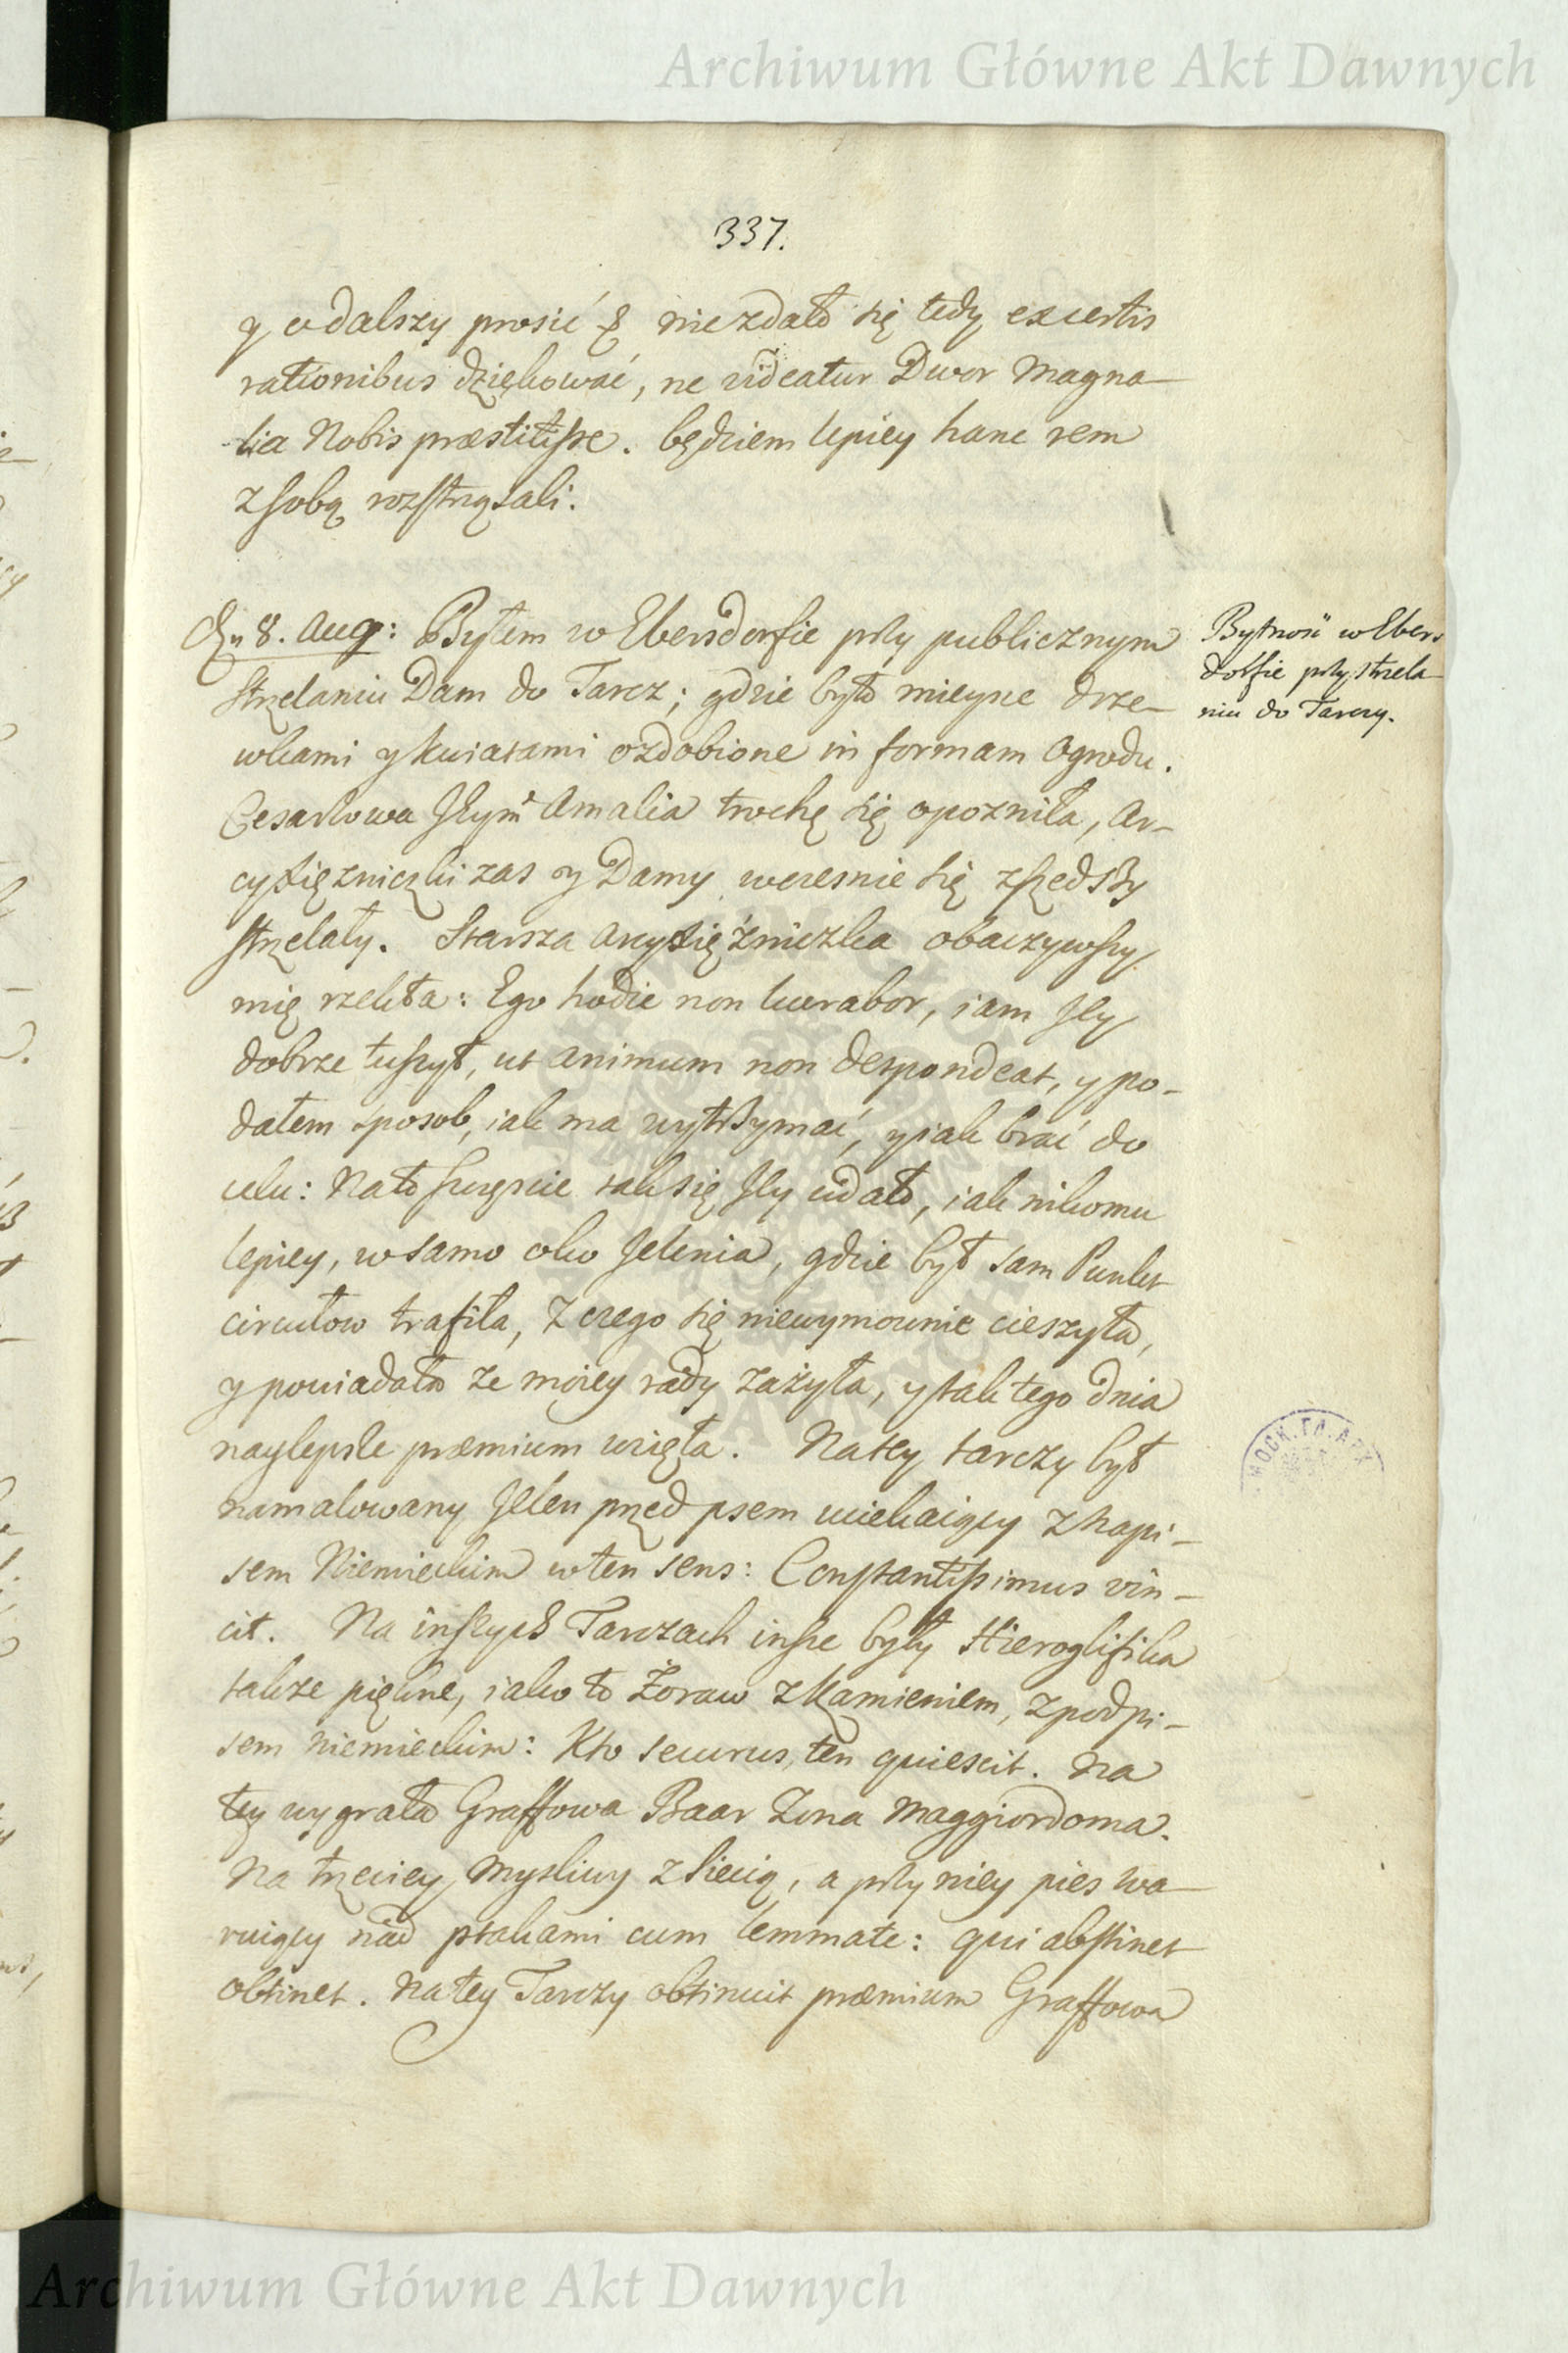 Archiwum Główne Akt Dawnych
337.
y o dalszy prosić & nie zdało się tedy ex certis
rationibus dziękować, ne videatur Dwor Magna-
lia Nobis præstitisse. będziem lepiey hanc rem
z sobą roztrząsali.
8. Aug: Byłem w Ebersdorfie przy publicznym
strzelaniu Dam do Tarcz; gdzie było mieysce drze-
wkami y kwiatami ozdobione in formam Ogrodu.
Cesarzowa Jeym̃ Amalia trochę się opozniła, Ar-
cyxiężniczki zas y Damy wczesnie się zszedszy
strzelały. Starsza Arcyxiężniczka obaczywszy
mię rzekła: Ego hodie non lucrabor, iam Jey
dobrze tuszył, ut animum non despondeat, y po-
dałem sposob, iak ma wytrzymać, y iak brać do
celu: Na to szczęscie tak się Jey udało, iak nikomu
lepiey, w samo oko Jelenia, gdzie był sam Punkt
circułow trafiła, z czego się niewymownie cieszyła,
y powiadała ze moiey rady zażyła, y tak tego dnia
naylepsze præmium wzięła. Na tey tarczy był
namalowany Jeleń przed psem uciekaiący z napi-
sem Niemieckim w ten sens: Constantissimus vin-
cit. Na inszych Tarczach insze były Hieroglifika
takze piękne, iako to Żoraw z kamieniem, z podpi-
sem niemieckim: Kto securus, ten quiescit. Na
tey wygrała Graffowa Baar Zona Maggiordoma.
Na trzeciey Mysliwy z siecią, a przy niey pies wa-
ruiący nad ptakami cum lemmate: qui abstinet
obtinet. Na tey Tarczy obtinuit præmium Graffowa
Bytność w Ebers
dorfie przy strzela
niu do Tarczy.
Archiwum Główne Akt Dawnych